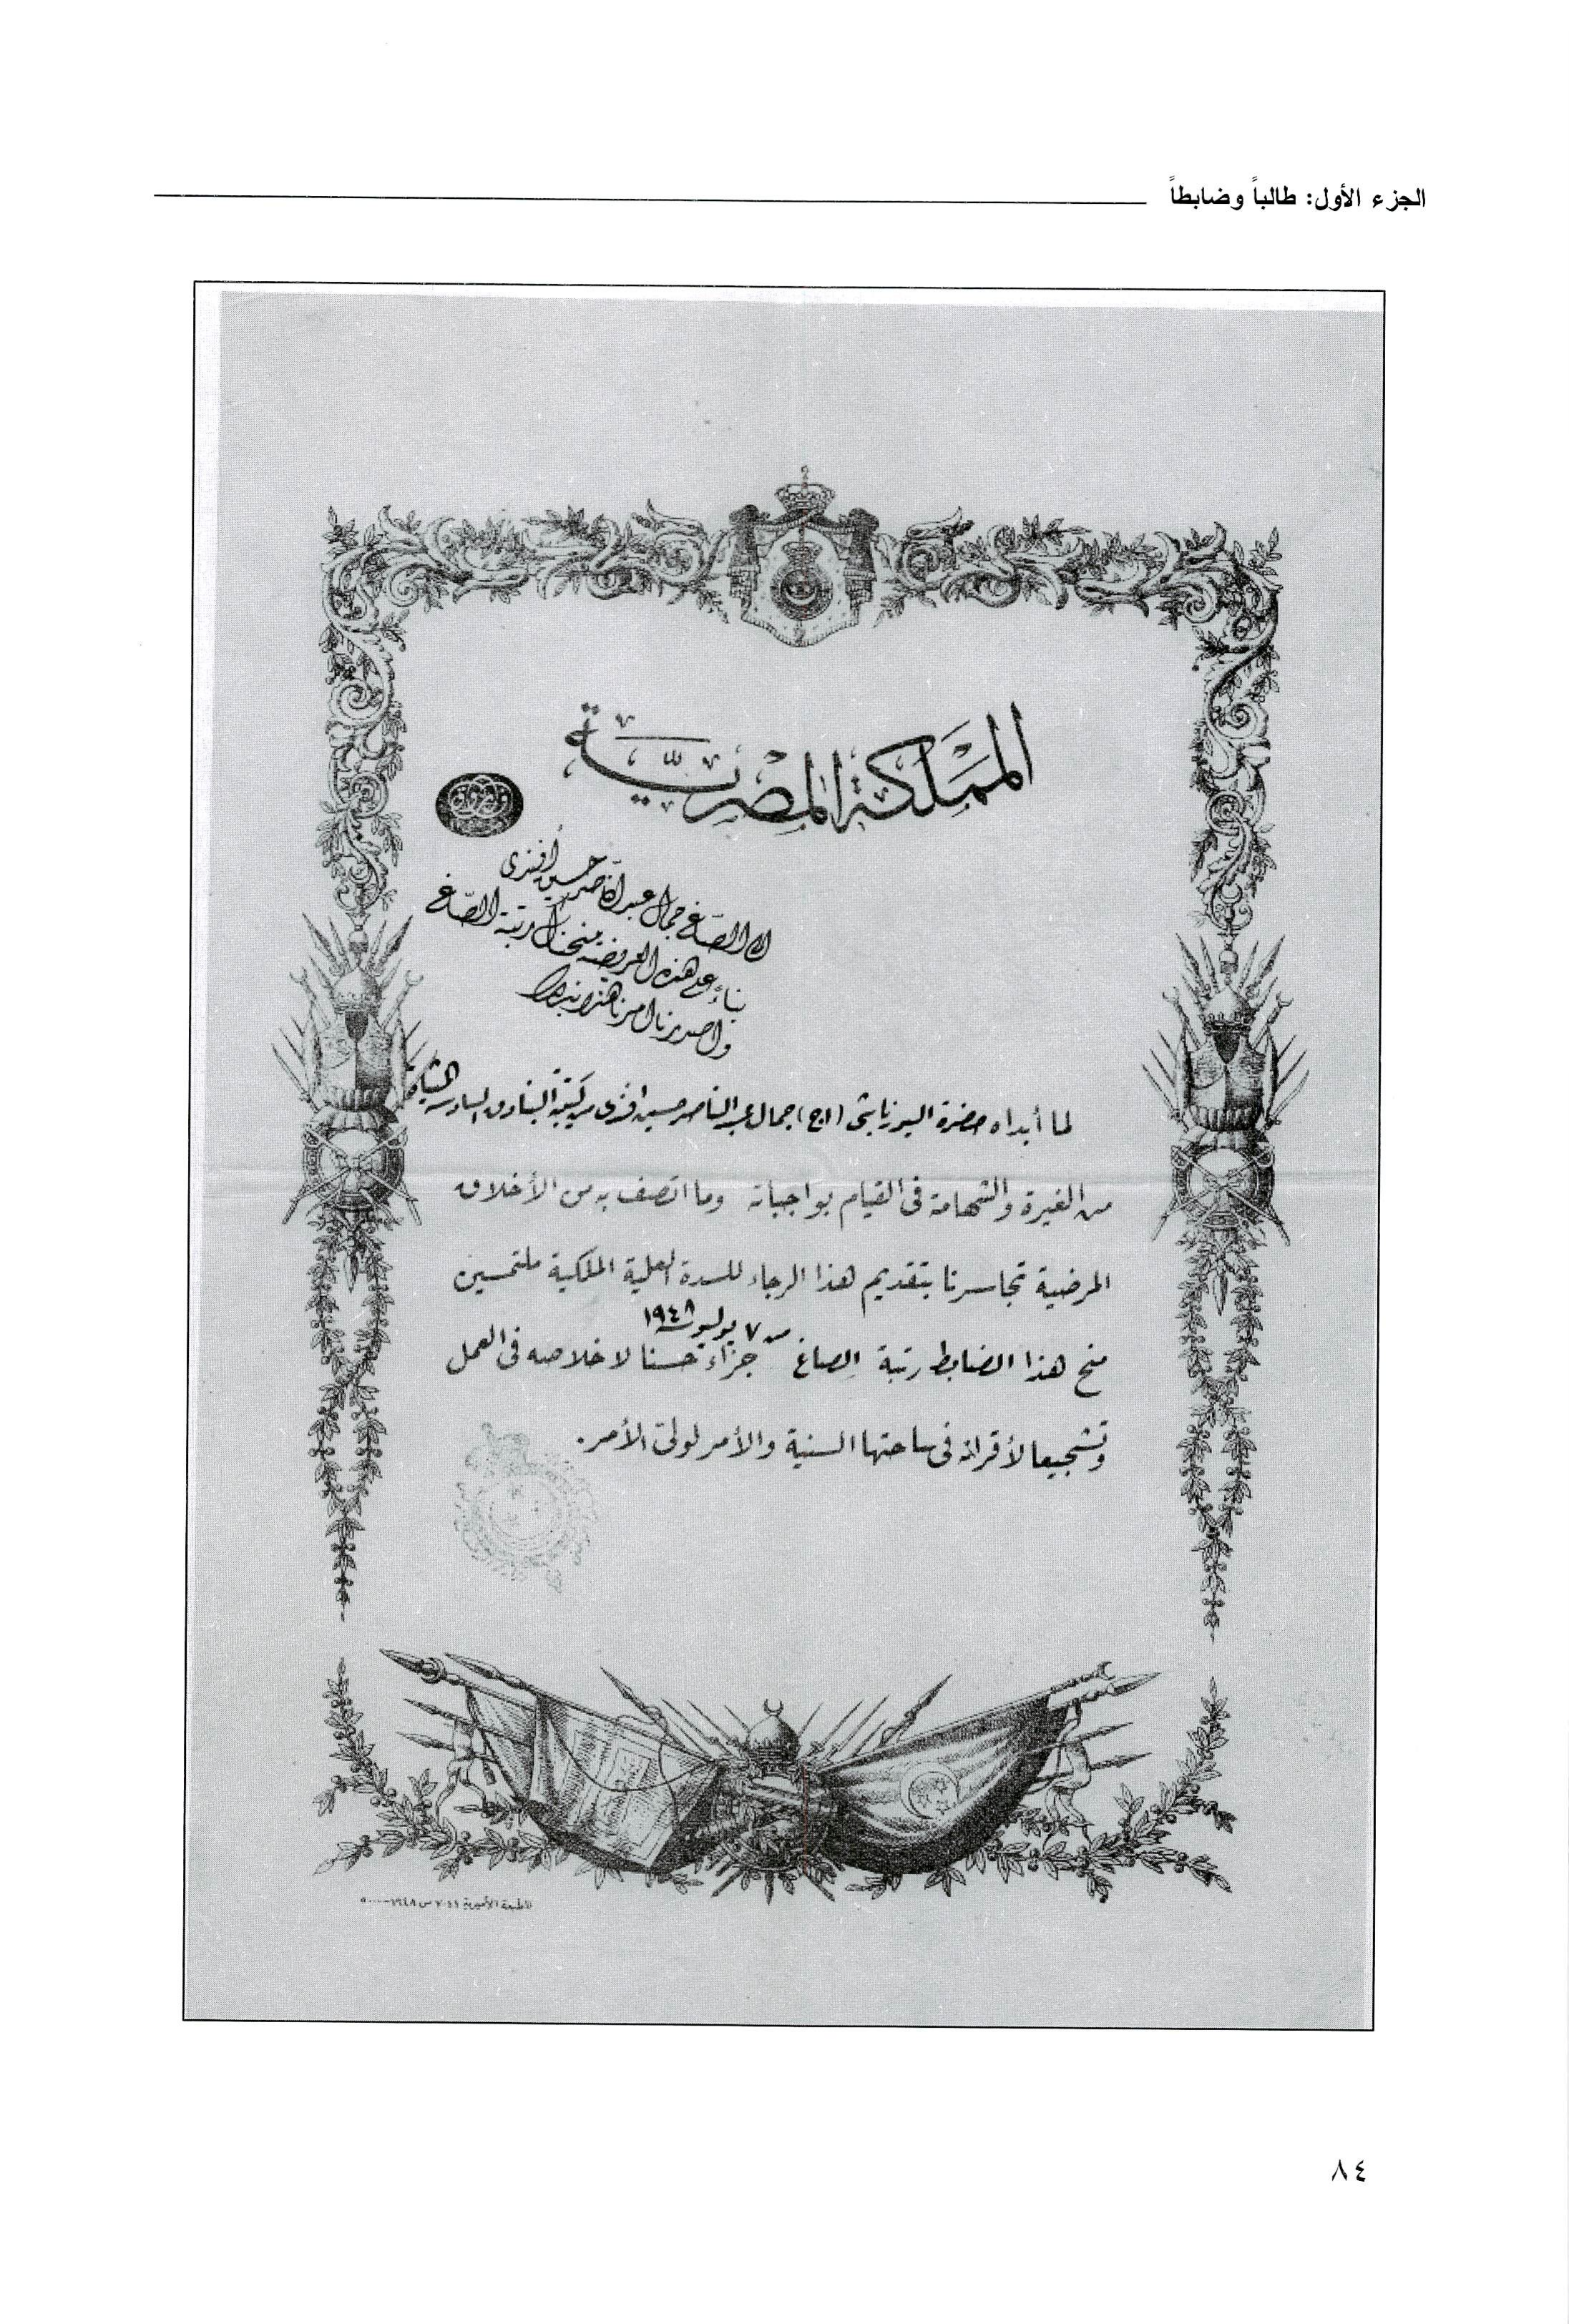 الجزء الأول: طالباً وضابطاً
المملكة المصرية
الى الصاغ جمال عبد الناصر حسين أفندى
بناءً على هذه العريضة منحناك رتبة الصاغ
واصدرنا امرنا هذا
لما أبداه حضرة اليوزباشى (ا ح) جمال عبد الناصر حسين افندى من كتيبة البنادق السادسة المشاة
من الغيرة والشهامة فى القيام بواجباته وما اتصف به من الأخلاق
المرضية تجاسرنا بتقديم هذا الرجاء للسدة العلية الملكية ملتمسين
من ٧ يوليو ١٩٤٨
منح هذا الضابط رتبة الصاغ جزاءً حسنا لاخلاصه فى العمل
وتشجيعا لأقرانه فى ساحتها السنية والأمر لولى الأمر.
المطبعة الأميرية
٨٤